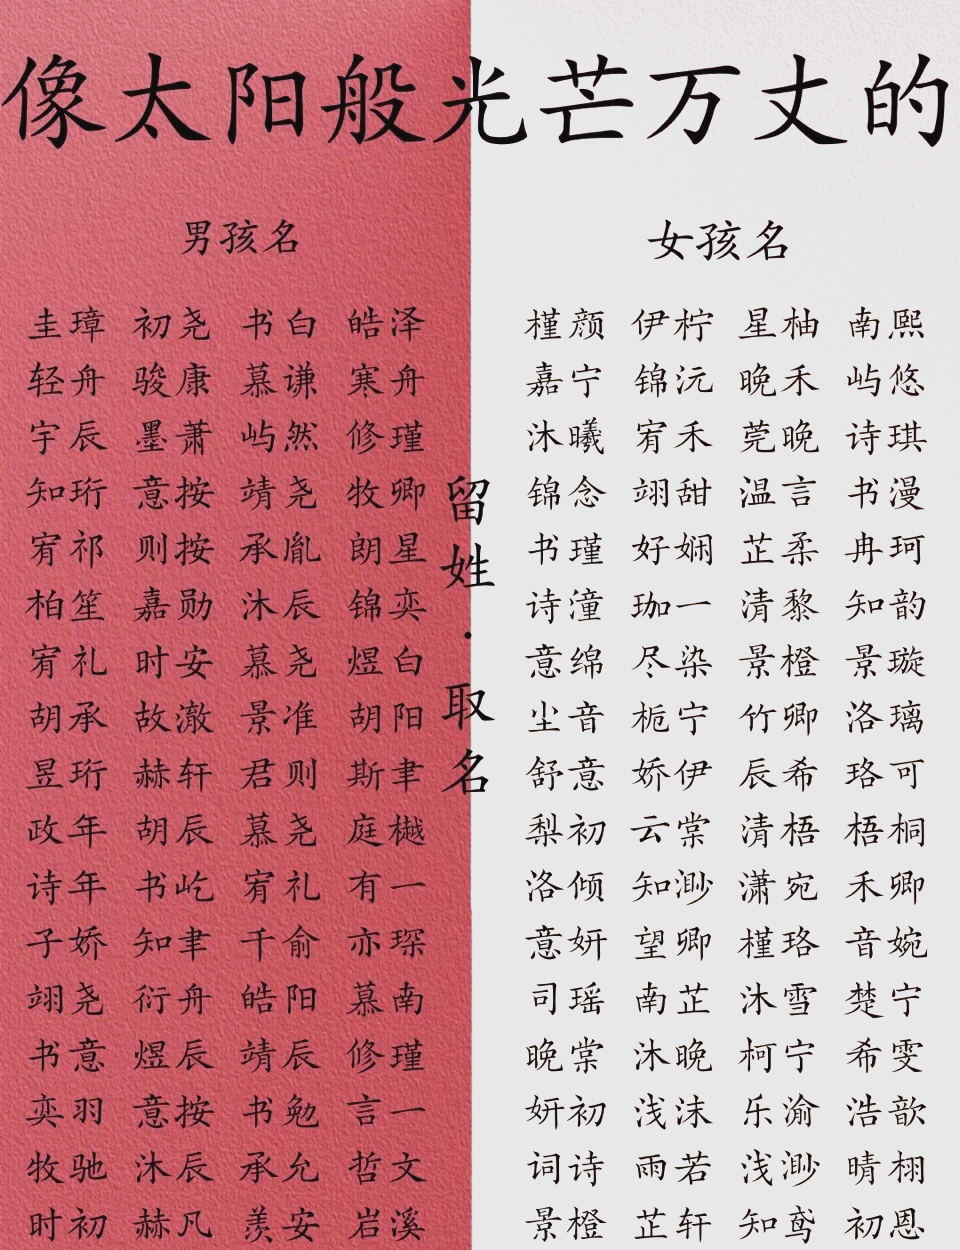 像太阳般光芒万丈的
男孩名
圭璋 初尧 书白 皓泽
轻舟 骏康 慕谦 寒舟
宇辰 墨萧 屿然 修瑾
知珩 意按 靖尧 牧卿
宥祁 则按 承胤 朗星
柏笙 嘉勋 沐辰 锦奕
宥礼 时安 慕尧 煜白
胡承 故澈 景准 胡阳
昱珩 赫轩 君则 斯聿
政年 胡辰 慕尧 庭樾
诗年 书屹 宥礼 有一
子娇 知聿 千俞 亦琛
翊尧 衍舟 皓阳 慕南
书意 煜辰 靖辰 修瑾
奕羽 意按 书勉 言一
牧驰 沐辰 承允 哲文
时初 赫凡 羡安 岩溪
留姓·取名
女孩名
槿颜 伊柠 星柚 南熙
嘉宁 锦沅 晚禾 屿悠
沐曦 宥禾 莞晚 诗琪
锦念 翊甜 温言 书漫
书瑾 好娴 芷柔 冉珂
诗潼 珈一 清黎 知韵
意绵 尽染 景橙 景璇
尘音 栀宁 竹卿 洛璃
舒意 娇伊 辰希 珞可
梨初 云棠 清梧 梧桐
洛倾 知渺 潇宛 禾卿
意妍 望卿 槿珞 音婉
司瑶 南芷 沐雪 楚宁
晚棠 沐晚 柯宁 希雯
妍初 浅沫 乐渝 浩歆
词诗 雨若 浅渺 晴栩
景橙 芷轩 知鸢 初恩